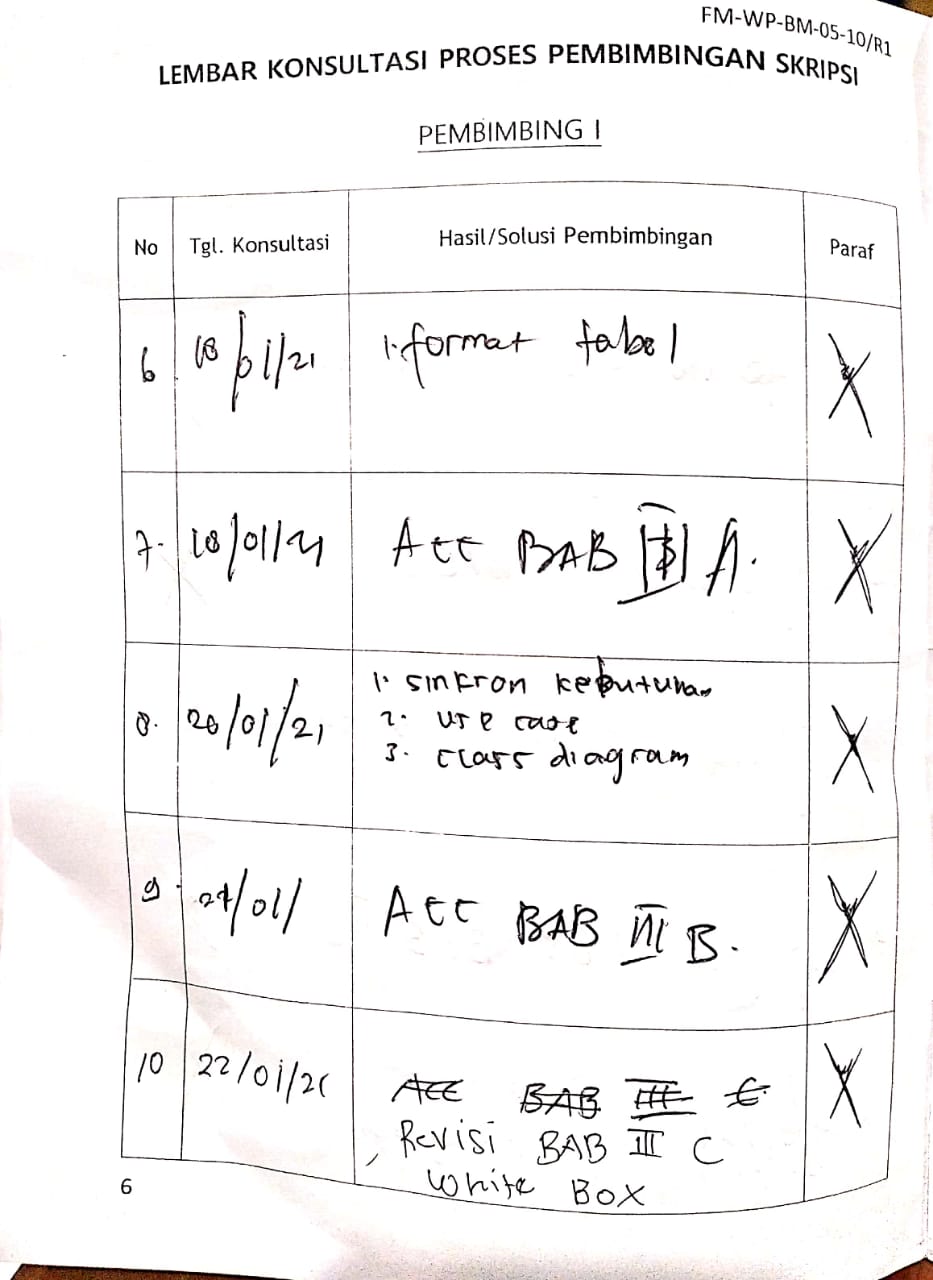 FM-WP-BM-05-10/R1
LEMBAR KONSULTASI PROSES PEMBIMBINGAN SKRIPSI
PEMBIMBING I
No Tgl. Konsultasi Hasil/Solusi Pembimbingan Paraf
6 18/01/21 1. format tabel
7. 18/01/21 Acc BAB III A.
8. 20/01/21 1. sinkron kebutuhan
2. use case
3. class diagram
9. /01/ Acc BAB III B.
10 22/01/21 Acc BAB III C
Revisi BAB III C
White Box
6